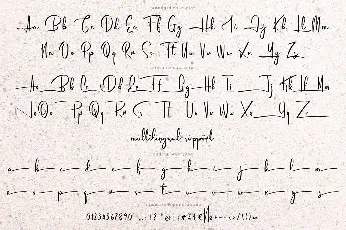 Aa Bb Cc Dd Ee Ff Gg Hh Ii Jj Kk Ll Mm
Nn Oo Pp Qq Rr Ss Tt Uu Vv Ww Xx Yy Zz
Aa Bb Cc Dd Ee Ff Gg Hh Ii Jj Kk Ll Mm
Nn Oo Pp Qq Rr Ss Tt Uu Vv Ww Xx Yy Zz
multilingual support
a b c d e f g h i j k l m
n o p q r s t u v w x y z
0123456789